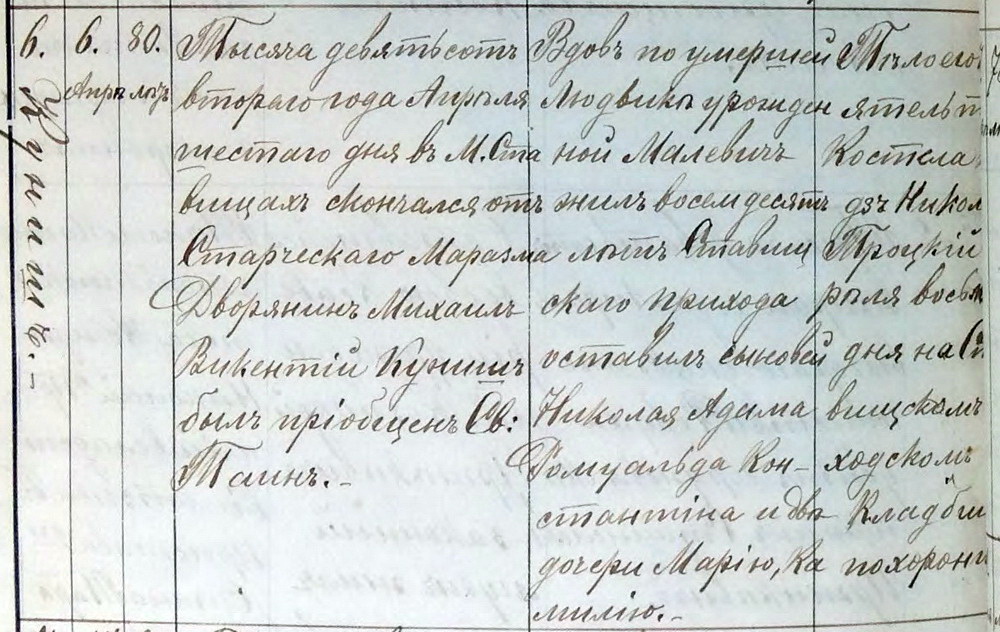 6. 6. 80.
Апрѣль
Куншт.-
Тысяча девятьсотъ
втораго года Апрѣля
шестаго дня въ М. Ста
вищахъ скончался отъ
Старческаго Маразма
Дворянинъ Михаилъ
Викентій
былъ пріобщенъ Св:
Таинъ.-
Вдовъ по умершей
Людвикѣ урожден
ной Малевичъ
жилъ восемдесятъ
лѣтъ Ставищ
скаго прихода
оставилъ сыновей
Николая Адама
Ромуальда Кон-
стантіна и двѣ
дочери Марію, Ка
милію.-
Тѣло его
ятельт
Костела
дзъ Никол
Троцкій
рѣля восьм
дня на Ст
вищскомъ
ходскомъ
Кладбищ
похорони